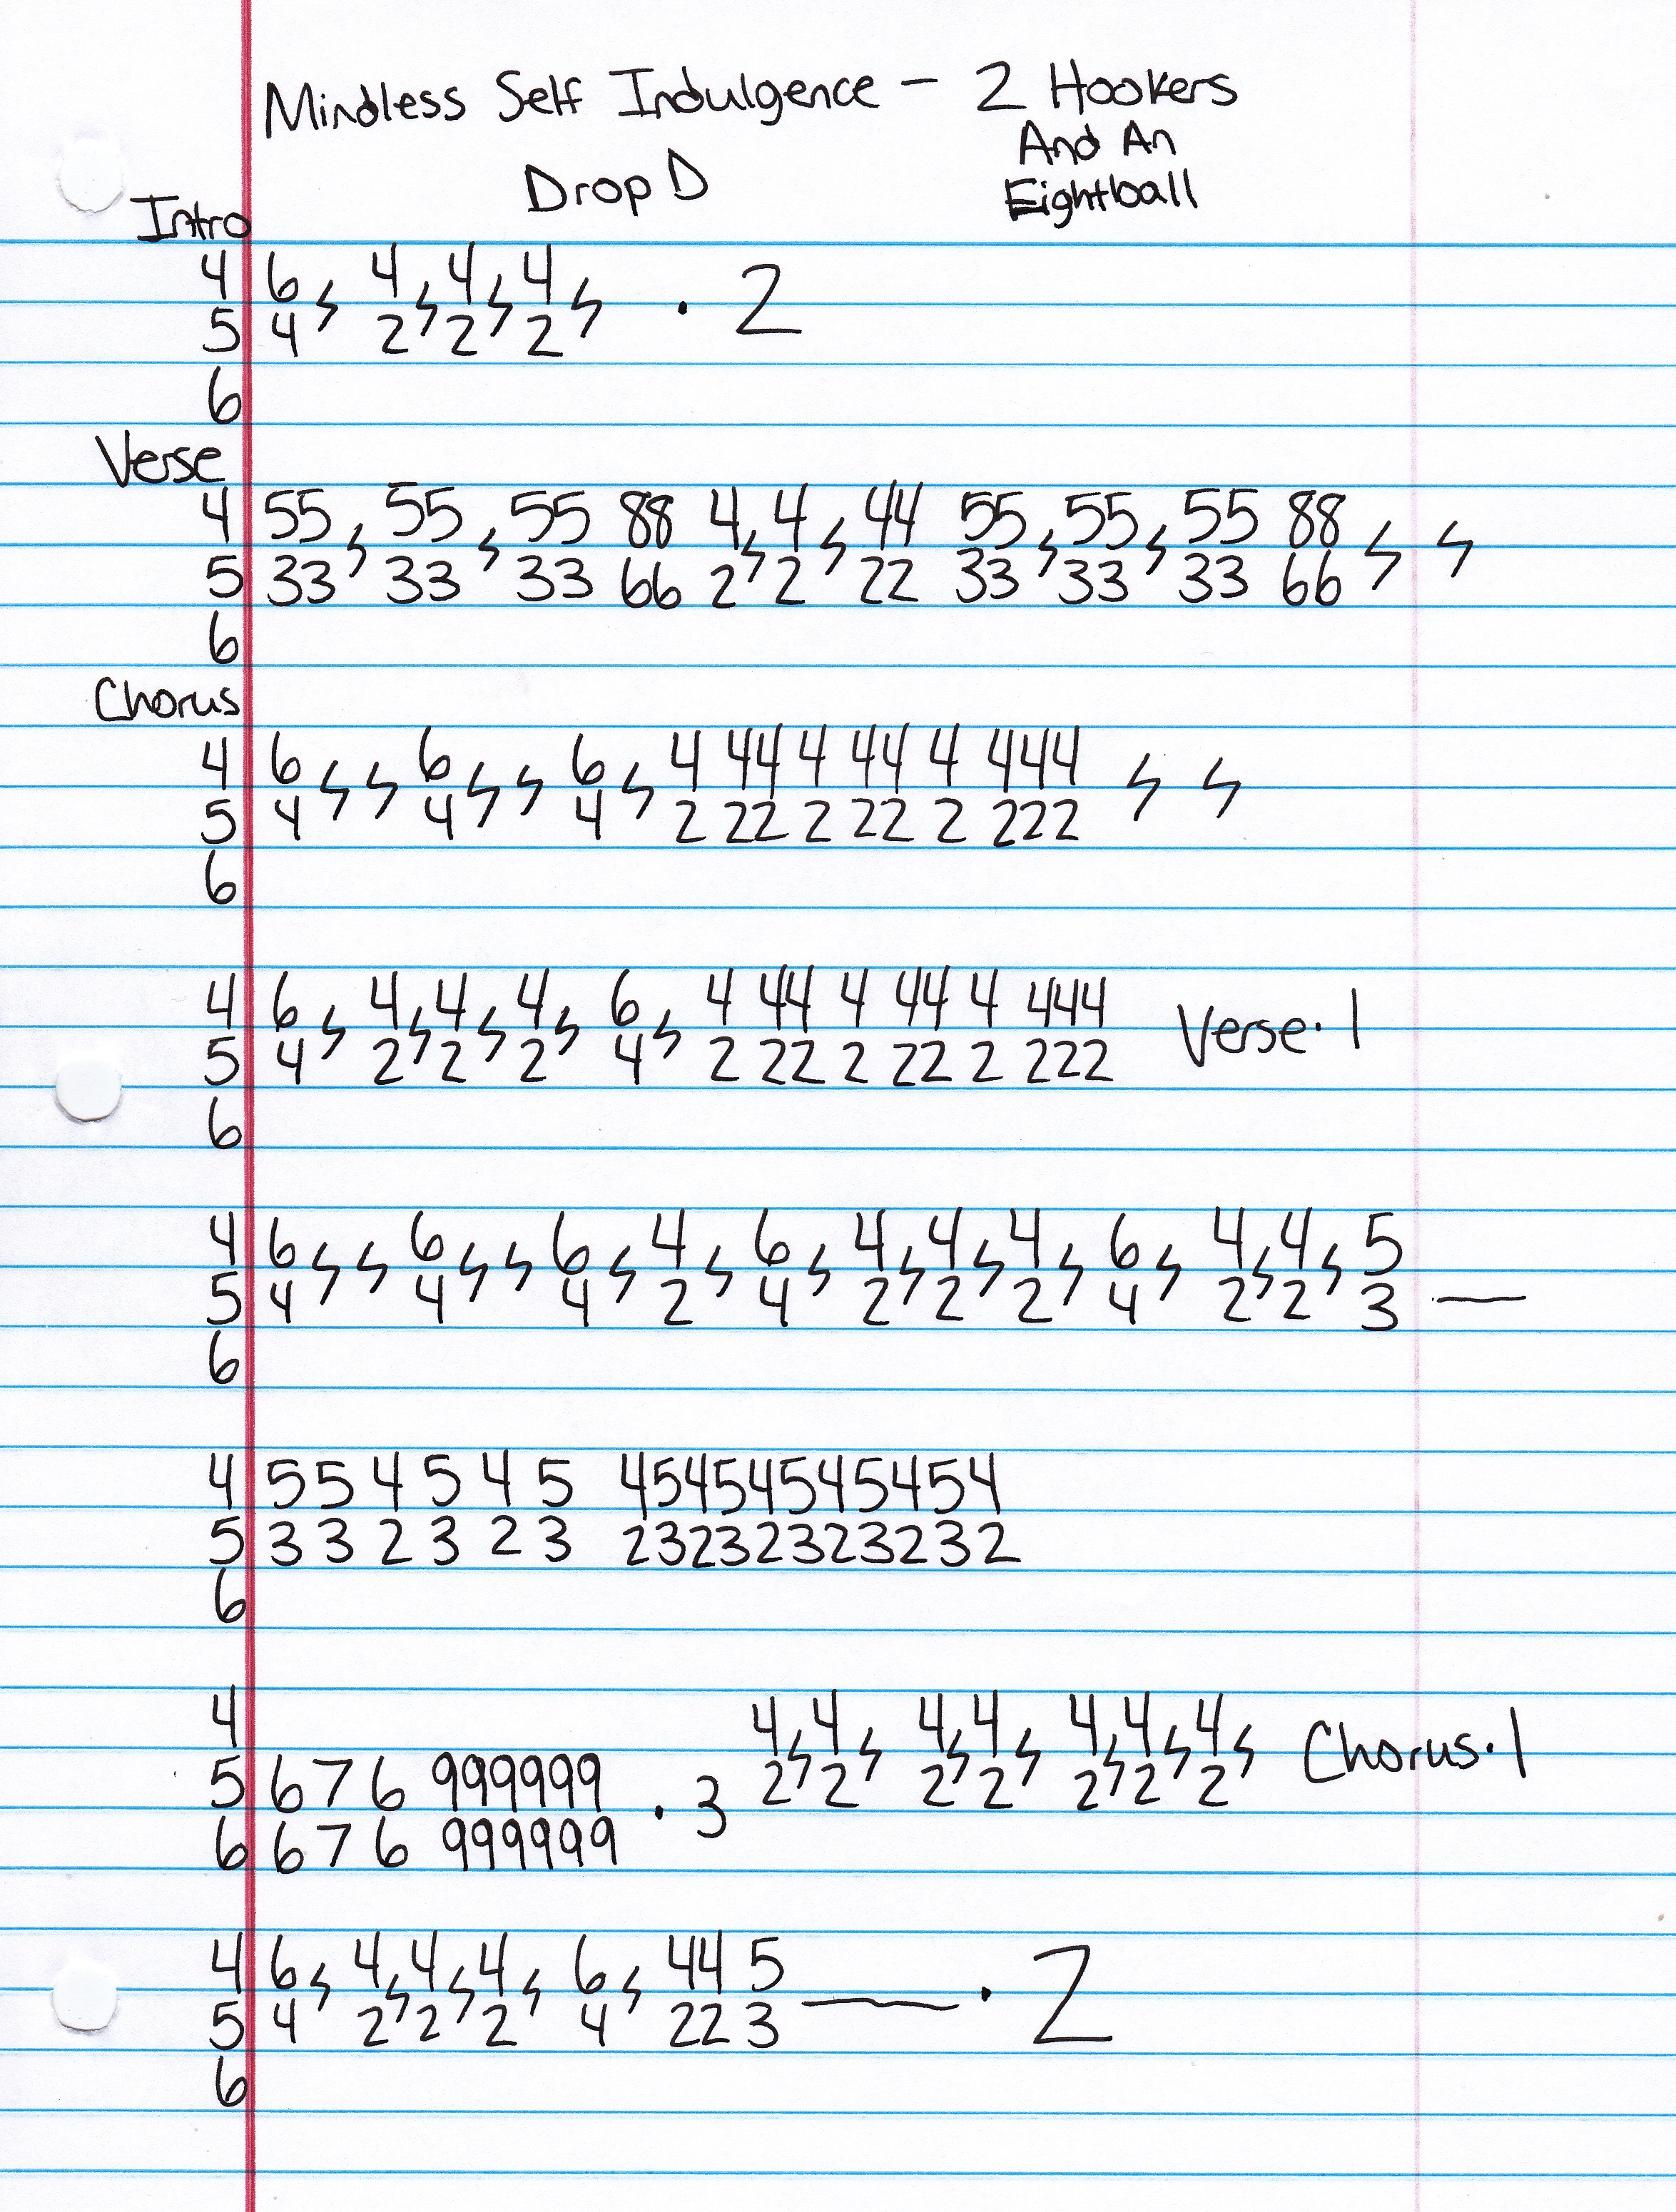 Mindless Self Indulgence - 2 Hookers
And An
Drop D
Eightball
Intro
4 6 ϟ 4 ϟ 4 ϟ 4 ϟ · 2
5 4 2 2 2
6
Verse
4 55 ϟ 55 ϟ 55 88 4 ϟ 4 ϟ 44 55 ϟ 55 ϟ 55 88 ϟ ϟ
5 33 33 33 66 2 2 22 33 33 33 66
6
Chorus
4 6 ϟ ϟ 6 ϟ ϟ 6 ϟ 4 44 4 44 4 444 ϟ ϟ
5 4 4 4 2 22 2 22 2 222
6
4 6 ϟ 4 ϟ 4 ϟ 4 ϟ 6 ϟ 4 44 4 44 4 444 Verse · 1
5 4 2 2 2 4 2 22 2 22 2 222
6
4 6 ϟ ϟ 6 ϟ ϟ 6 ϟ 4 ϟ 6 ϟ 4 ϟ 4 ϟ 4 ϟ 6 ϟ 4 ϟ 4 ϟ 5
5 4 4 4 2 4 2 2 2 4 2 2 3 —
6
4 5 5 4 5 4 5 45454545454
5 3 3 2 3 2 3 23232323232
6
4 4 ϟ 4 ϟ 4 ϟ 4 ϟ 4 ϟ 4 ϟ 4 ϟ Chorus · 1
5 6 7 6 999999 · 3 2 2 2 2 2 2 2
6 6 7 6 999999
4 6 ϟ 4 ϟ 4 ϟ 4 ϟ 6 ϟ 44 5 — · 2
5 4 2 2 2 4 22 3
6